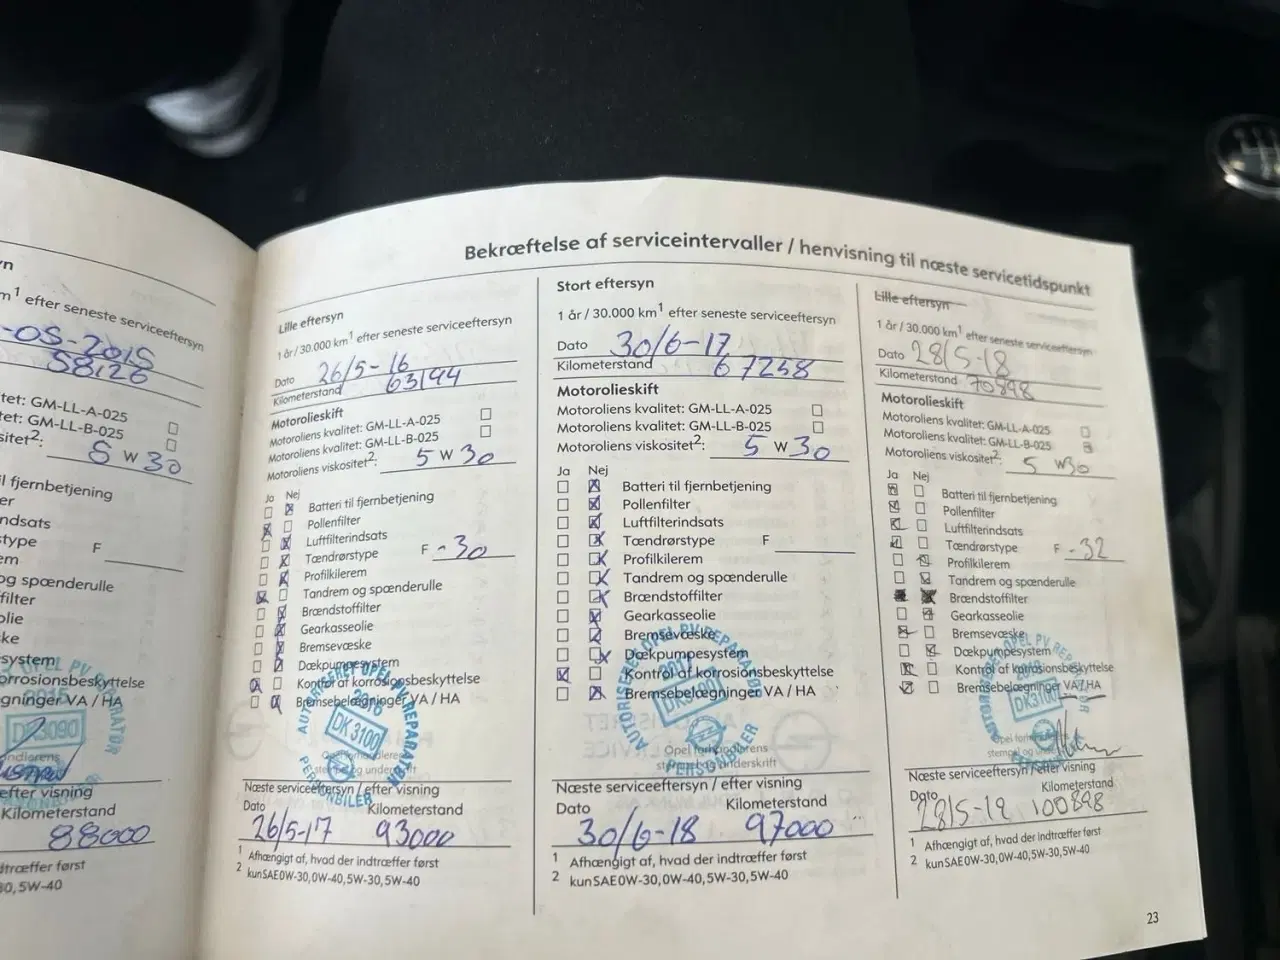 Bekræftelse af serviceintervaller / henvisning til næste servicetidspunkt
yn
m¹ efter seneste serviceeftersyn
-05-2015
58126
tet: GM-LL-A-025
tet: GM-LL-B-025
sitet²: 5 W 30
il fjernbetjening
er
ndsats
stype F
em
og spænderulle
filter
olie
ke
system
orrosionsbeskyttelse
gninger VA / HA
DK3090
ndlerens
efter visning
Kilometerstand
88000
dtræffer først
30, 5W-40
Lille eftersyn
1 år / 30.000 km¹ efter seneste serviceeftersyn
Dato 26/5-16
Kilometerstand 63144
Motorolieskift
Motoroliens kvalitet: GM-LL-A-025
Motoroliens kvalitet: GM-LL-B-025
Motoroliens viskositet²: 5 W 30
Ja Nej
Batteri til fjernbetjening
Pollenfilter
Luftfilterindsats
Tændrørstype F -30
Profilkilerem
Tandrem og spænderulle
Brændstoffilter
Gearkasseolie
Bremsevæske
Dækpumpesystem
Kontrol af korrosionsbeskyttelse
Bremsebelægninger VA / HA
AUTORISERET OPEL PV REPARATØR
2016
DK 3100
PERSONBILER
Næste serviceeftersyn / efter visning
Dato Kilometerstand
26/5-17 93000
¹ Afhængigt af, hvad der indtræffer først
² kun SAE 0W-30, 0W-40, 5W-30, 5W-40
Stort eftersyn
1 år / 30.000 km¹ efter seneste serviceeftersyn
Dato 30/6-17
Kilometerstand 67258
Motorolieskift
Motoroliens kvalitet: GM-LL-A-025
Motoroliens kvalitet: GM-LL-B-025
Motoroliens viskositet²: 5 W 30
Ja Nej
Batteri til fjernbetjening
Pollenfilter
Luftfilterindsats
Tændrørstype F
Profilkilerem
Tandrem og spænderulle
Brændstoffilter
Gearkasseolie
Bremsevæske
Dækpumpesystem
Kontrol af korrosionsbeskyttelse
Bremsebelægninger VA / HA
AUTORISERET OPEL PV REPARATØR
2017
DK3100
PERSONBILER
Opel forhandlerens
stempel og underskrift
Næste serviceeftersyn / efter visning
Dato Kilometerstand
30/6-18 97000
¹ Afhængigt af, hvad der indtræffer først
² kun SAE 0W-30, 0W-40, 5W-30, 5W-40
Lille eftersyn
1 år / 30.000 km¹ efter seneste serviceeftersyn
Dato 28/5-18
Kilometerstand 70898
Motorolieskift
Motoroliens kvalitet: GM-LL-A-025
Motoroliens kvalitet: GM-LL-B-025
Motoroliens viskositet²: 5 W30
Ja Nej
Batteri til fjernbetjening
Pollenfilter
Luftfilterindsats
Tændrørstype F -32
Profilkilerem
Tandrem og spænderulle
Brændstoffilter
Gearkasseolie
Bremsevæske
Dækpumpesystem
Kontrol af korrosionsbeskyttelse
Bremsebelægninger VA / HA
2018
DK3100
Næste serviceeftersyn / efter visning
Dato Kilometerstand
28/5-19 100898
¹ Afhængigt af, hvad der indtræffer først
² kun SAE 0W-30, 0W-40, 5W-30, 5W-40
23